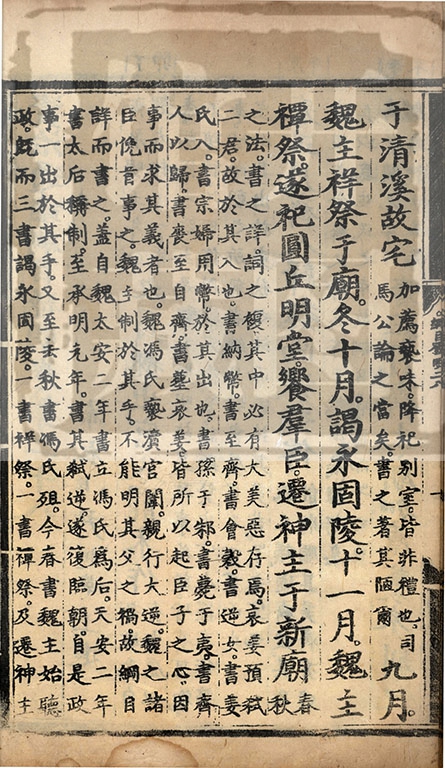 于清溪故宅 加薦褻味。降祀別室。皆非禮也。司
馬公論之當矣。書之著其陋爾 九月。
魏主祥祭于廟。冬十月。謁永固陵。十一月。魏主
禫祭。遂祀圓丘明堂饗羣臣。遷神主于新廟 春秋
之法。書之詳。詞之複。其中必有大美惡存焉。哀姜預弒
二君。故於其入也。書納幣。書至齊。書會穀。書逆女。書姜
氏入。書宗婦用幣。於其出也。書孫于邾。書薨于夷。書齊
人以歸。書喪至自齊。書葬哀姜。皆所以起臣子之心。因
事而求其義者也。魏馮氏褻瀆宮闈。親行大逆。魏之諸
臣俛首事之。魏主制於其手。不能明其父之禍。故綱目
詳而書之。蓋自魏太安二年書立馮氏爲后。天安二年
書太后稱制。至承明元年。書其弒逆。遂復臨朝。自是政
事一出於其手。又至去秋書馮氏殂。今春書魏主始聽
政。既而三書謁永固陵。一書祥祭。一書禫祭。及遷神主